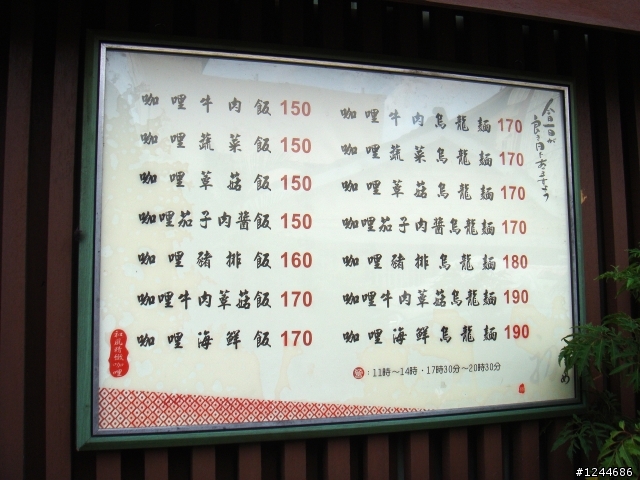 咖哩牛肉飯 150
咖哩蔬菜飯 150
咖哩草菇飯 150
咖哩茄子肉醬飯 150
咖哩豬排飯 160
咖哩牛肉草菇飯 170
咖哩海鮮飯 170
咖哩牛肉烏龍麵 170
咖哩蔬菜烏龍麵 170
咖哩草菇烏龍麵 170
咖哩茄子肉醬烏龍麵 170
咖哩豬排烏龍麵 180
咖哩牛肉草菇烏龍麵 190
咖哩海鮮烏龍麵 190
:11時～14時・17時30分～20時30分
和風精緻咖哩
#1244686